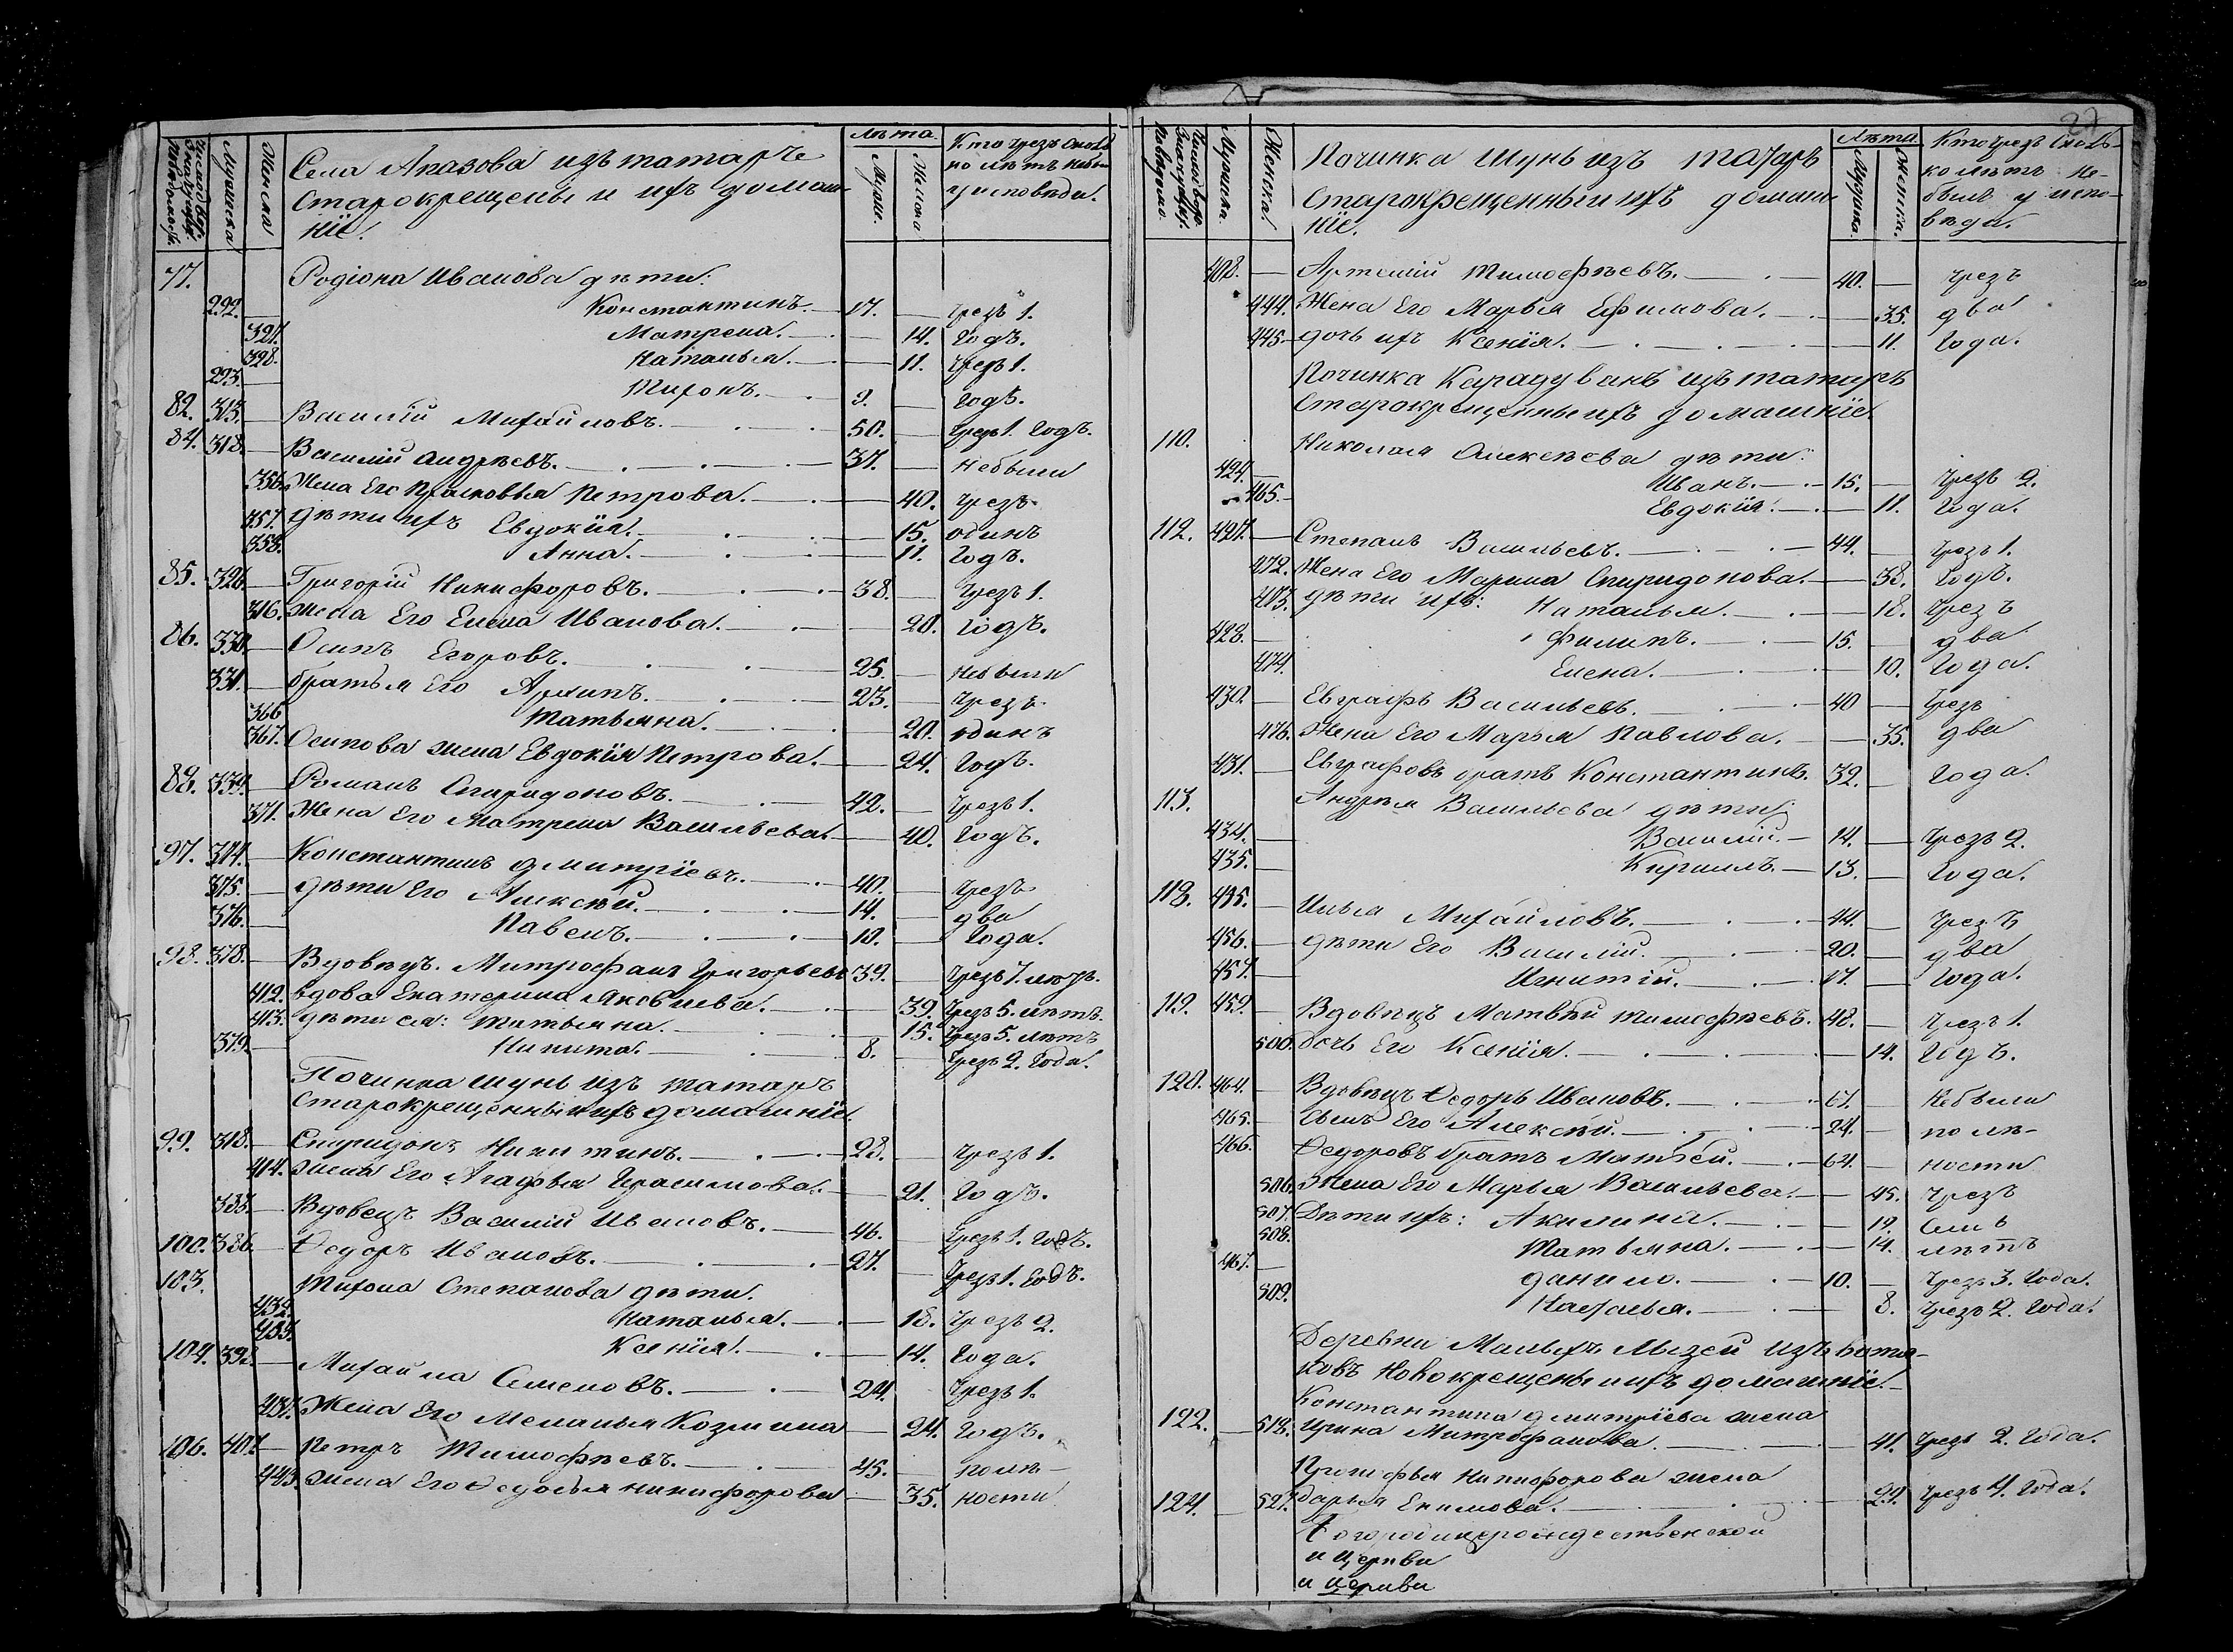 Села Апазова изъ татаръ
Старокрещены и ихъ домаш-
ніе.
Лѣта.
Мужск.
Женска
Мужеска
Женска
77. Родіона Иванова дѣти:
292. Константинъ. 17. чрезъ 1.
327. Матрена. 14. Годъ.
328. Наталья. 11. чрезъ 1.
293. Тихонъ. 9. Годъ.
82. 313. Василій Михайловъ. 50. Чрезъ 1. Годъ.
84. 318. Василій Андрѣевъ. 37. Небыли
356. Жена Его Прасковья Петрова. 40. Чрезъ
357. Дѣти ихъ Евдокія. 15. одинъ
358. Анна. 11. Годъ.
85. 326. Григорій Никифоровъ. 38. Чрезъ 1.
Жена Его Елена Иванова. 20. Годъ.
86. 330. Осипъ Егоровъ. 25. Небыли
331. братья Его Архипъ. 23. Чрезъ
366 Татьяна. 20. одинъ
367. Осипова жена Евдокія Петрова. 24. Годъ.
88. 334. Романъ Спиридоновъ. 42. Чрезъ 1.
371. Жена Его Матрена Васильева. 40. Годъ.
97. Константинъ Дмитріевъ. 40. Чрезъ
375. дѣти Его Алексѣй. 14. два
376. Павелъ. 10. Года.
98. 378. Вдовецъ. Митрофанъ Григорьевъ 39. Чрезъ 7. лѣтъ.
412. вдова Екатерина Яковлева. 39. Чрезъ 5. лѣтъ.
413. дѣти ея: Татьяна. 15. Чрезъ 5. лѣтъ
379. Никита. 8. Чрезъ 2. Года.
Починка Шунь изъ татаръ
Старокрещенныи ихъ домашніе.
99. Спиридонъ Никитинъ. 28. Чрезъ 1.
414. Жена Его Агафья Герасимова. 21. Годъ.
Вдовецъ Василій Ивановъ. 46. Чрезъ 1. Годъ.
100. 386. Ѳедоръ Ивановъ. 27. Чрезъ 1. Годъ.
103. Тихона Степанова дѣти.
Наталья. 18. Чрезъ 2.
Ксенія. 14. Года.
104. Михайла Семеновъ. 24. Чрезъ 1.
Жена Его Меланья Козмина 24. Годъ.
106. 407. Петръ Тимофѣевъ. 45. полѣ-
443. Жена Его Ѳедосья Никифорова 35. ности
27
Починка Шунь изъ татаръ
Старокрещенныи ихъ домаш-
ніе.
Лѣта.
Мужеска.
Женска.
Кто чрезъ сколь-
ко лѣтъ не-
былъ у испо-
вѣди.
Мужеска.
Женска.
408. Артемій Тимофѣевъ. 40. чрезъ
444. Жена Его Марья Ефимова. 35. два
445. дочь ихъ Ксенія. 11. Года.
Починка Карадуванъ изъ татаръ
Старокрещенныи ихъ домашніе.
110. Николая Алексѣева дѣти:
424. Иванъ. 15. Чрезъ 2.
465. Евдокія. 11. Года.
112. 427. Степанъ Васильевъ. 44. Чрезъ 1.
472. Жена Его Марина Спиридонова. 38. Годъ.
473. дѣти ихъ: Наталья. 18. Чрезъ
428. Филипъ. 15. два
474. Елена. 10. Года.
430. Евграфъ Васильевъ. 40 Чрезъ
476. Жена Его Марья Павлова. 35. два
431. Евграфовъ братъ Константинъ. 32. Года.
113. Андрѣя Васильева дѣти:
434. Василій. 14. Чрезъ 2.
435. Кирилъ. 13. Года.
118. 455. Илья Михайловъ. 44. Чрезъ
456. дѣти Его Василій. 20. два
457. Игнатій. 17. Года.
119. 459. Вдовецъ Матвѣй Тимофѣевъ. 48. Чрезъ 1.
500. Дочь Его Ксенія. 14. Годъ.
120. 464. Вдовецъ Ѳедоръ Ивановъ. 67. Небыли
465. Сынъ Его Алексѣй. 24. полѣ-
466. Ѳедоровъ братъ Матвѣй. 64. ности
506. Жена Его Марья Васильева. 45. Чрезъ
507. Дѣти ихъ: Акилина. 19. семь
508. Татьяна. 14. лѣтъ
467. Данило. 10. Чрезъ 3. Года.
509. Настасья. 8. Чрезъ 2. Года.
Деревни Малыхъ Лызей изъ вотя-
ковъ Новокрещены ихъ домашніе.
Константина Дмитріева жена
122. 518. Ирина Митрофанова. 41. Чрезъ 2. Года.
Прокофья Никифорова жена
124. 527. Дарья Екимова. 29. Чрезъ 4. Года.
Богородицерождественской
и Церкви
и Церкви